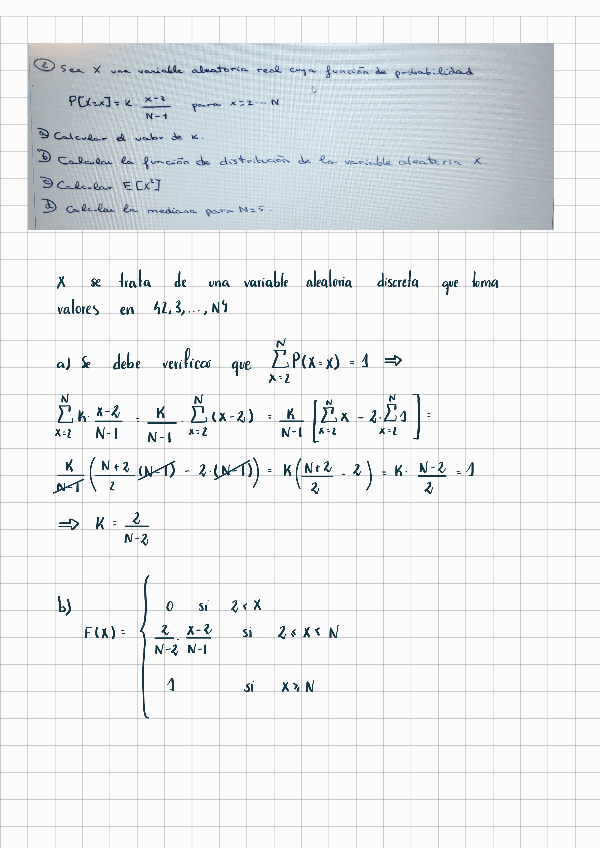 ② Sea X una variable aleatoria real cuya función de probabilidad
P[X=x] = K · (x-2)/(N-1) para x=2...N
a) Calcular el valor de K.
b) Calcular la función de distribución de la variable aleatoria X.
c) Calcular E[X²]
d) Calcular la mediana para N=5.
X se trata de una variable aleatoria discreta que toma
valores en {2,3,...,N}
a) Se debe verificar que ∑_{x=2}^{N} P(X=x) = 1 ⇒
∑_{x=2}^{N} K · (x-2)/(N-1) = K/(N-1) · ∑_{x=2}^{N} (x-2) = K/(N-1) [∑_{x=2}^{N} x - 2·∑_{x=2}^{N} 1] =
K/(N-1) ((N+2)/2 (N-1) - 2·(N-1)) = K((N+2)/2 - 2) = K · (N-2)/2 = 1
⇒ K = 2/(N-2)
b)
F(X) = {
0 si 2 < X
2/(N-2) · (X-2)/(N-1) si 2 ≤ X < N
1 si X ≥ N